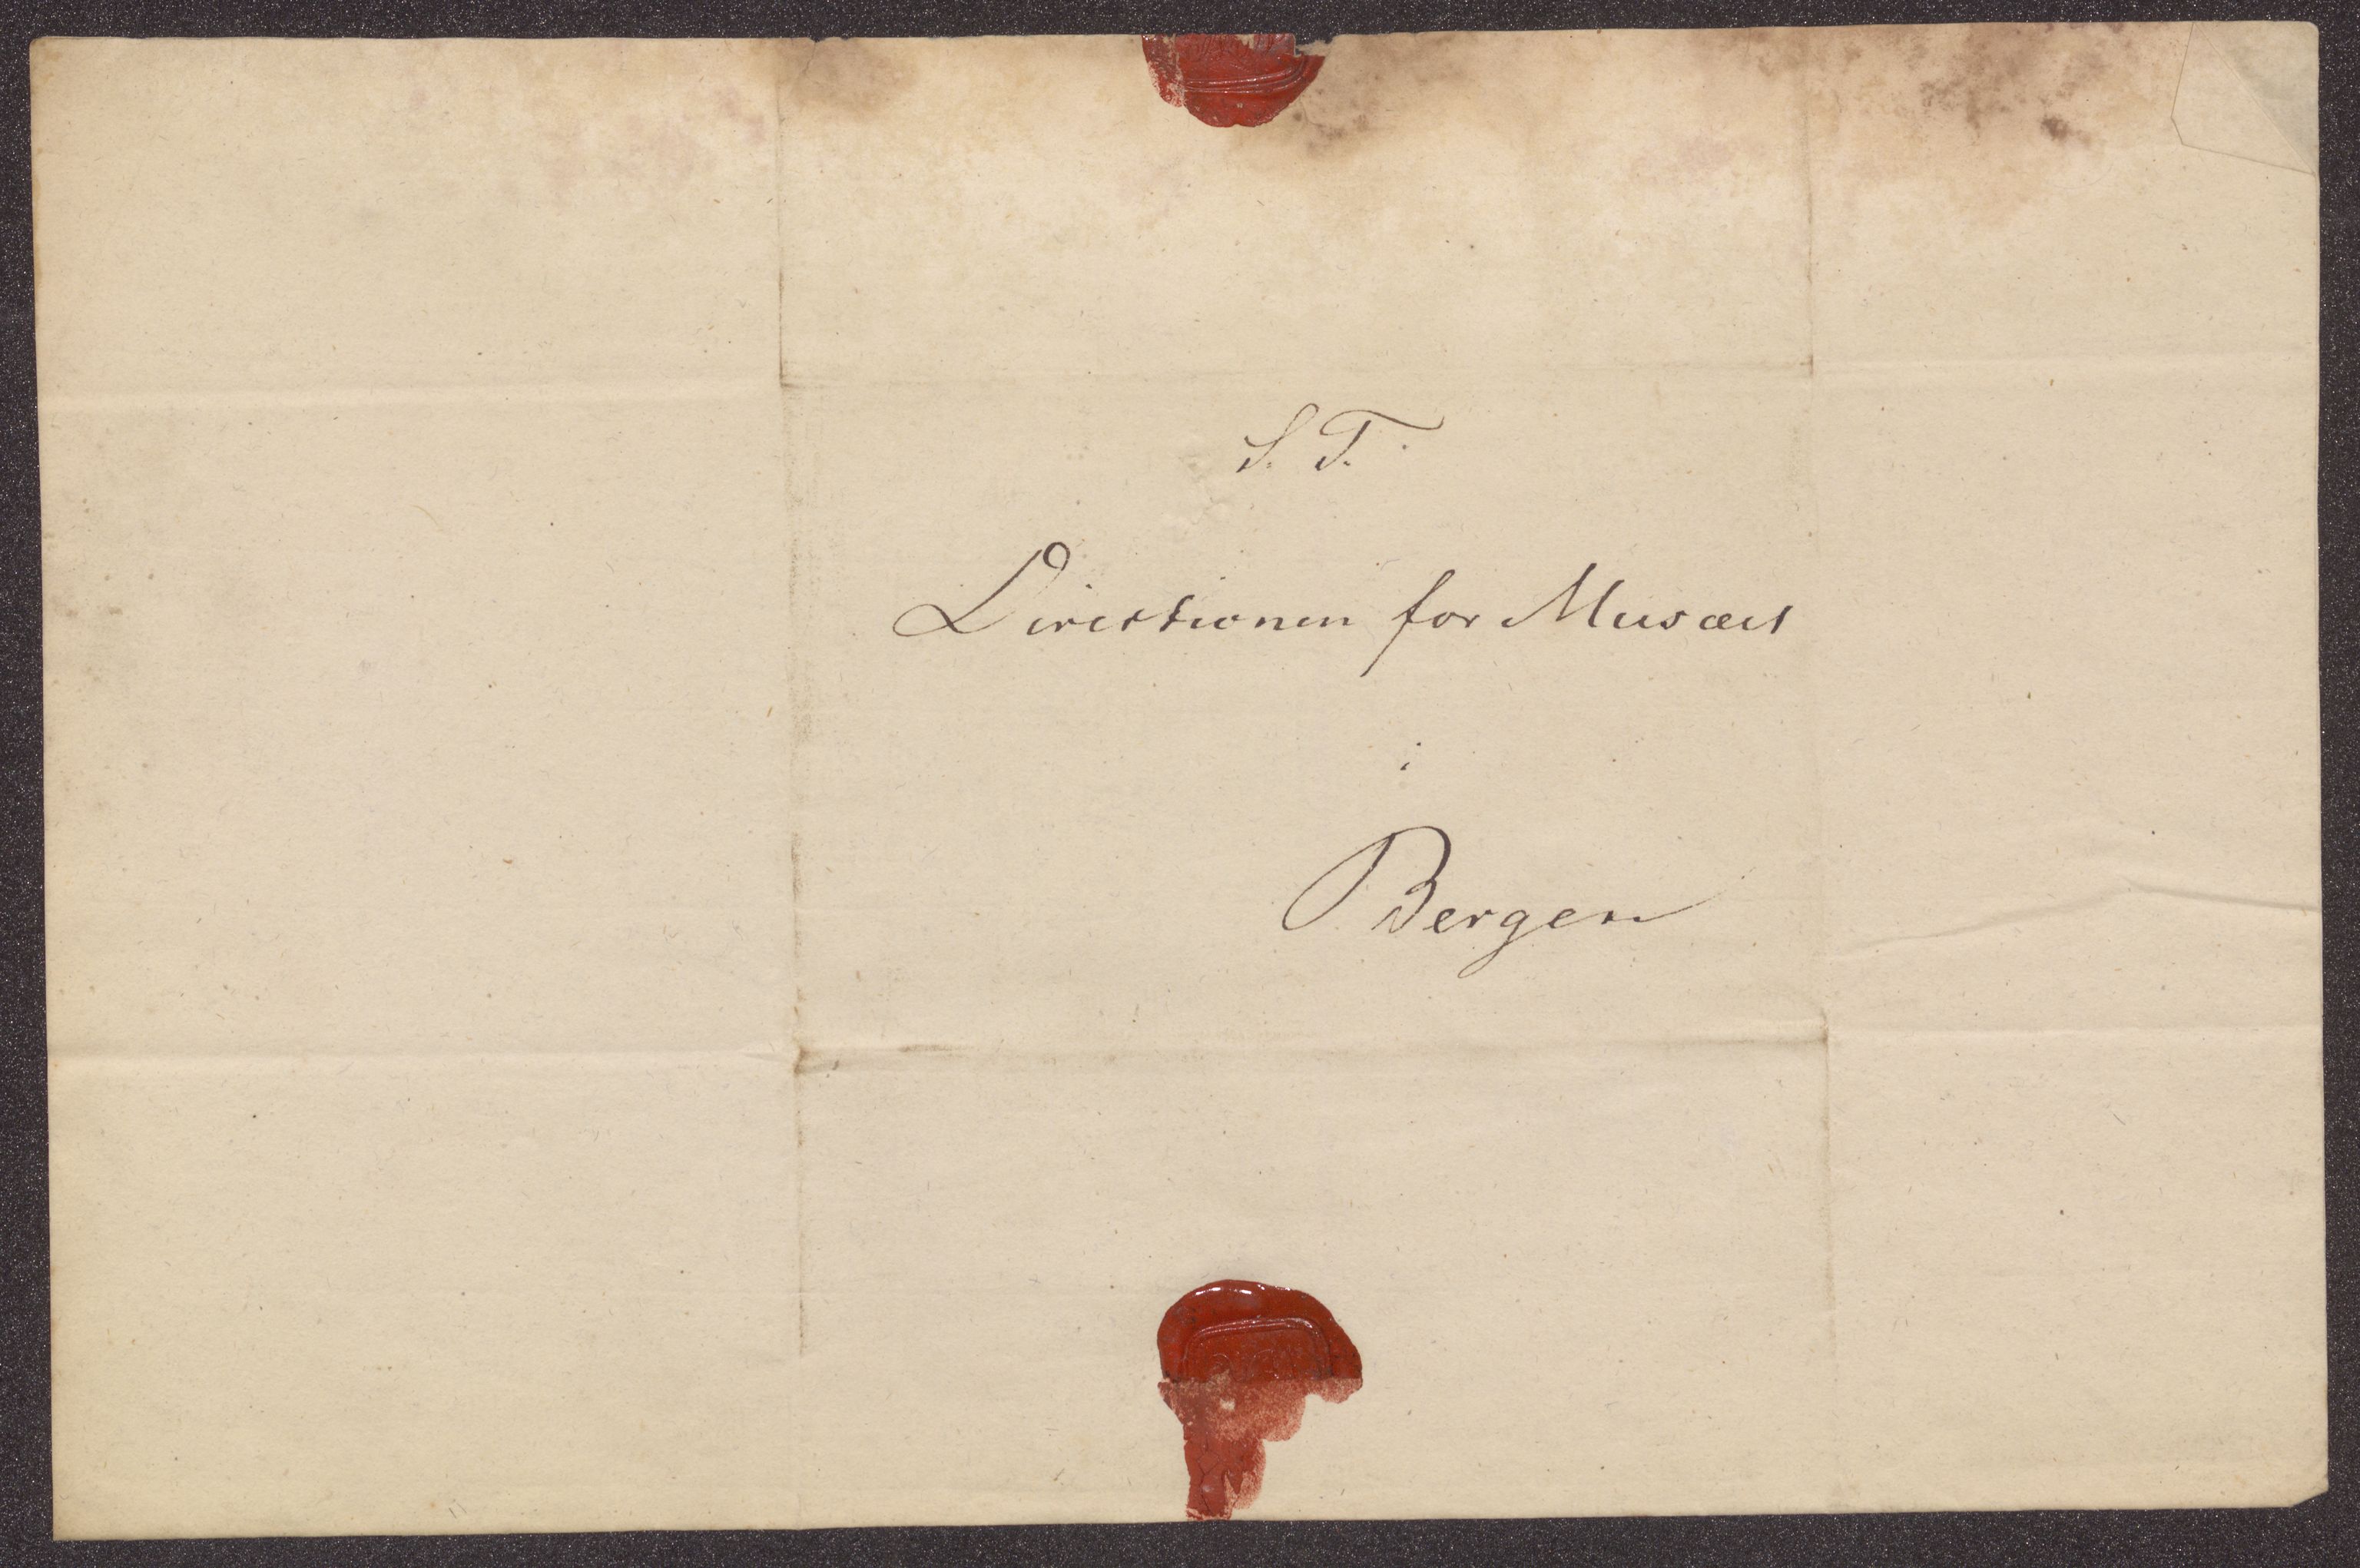 S. T.
Directionen for Musæet
i
Bergen